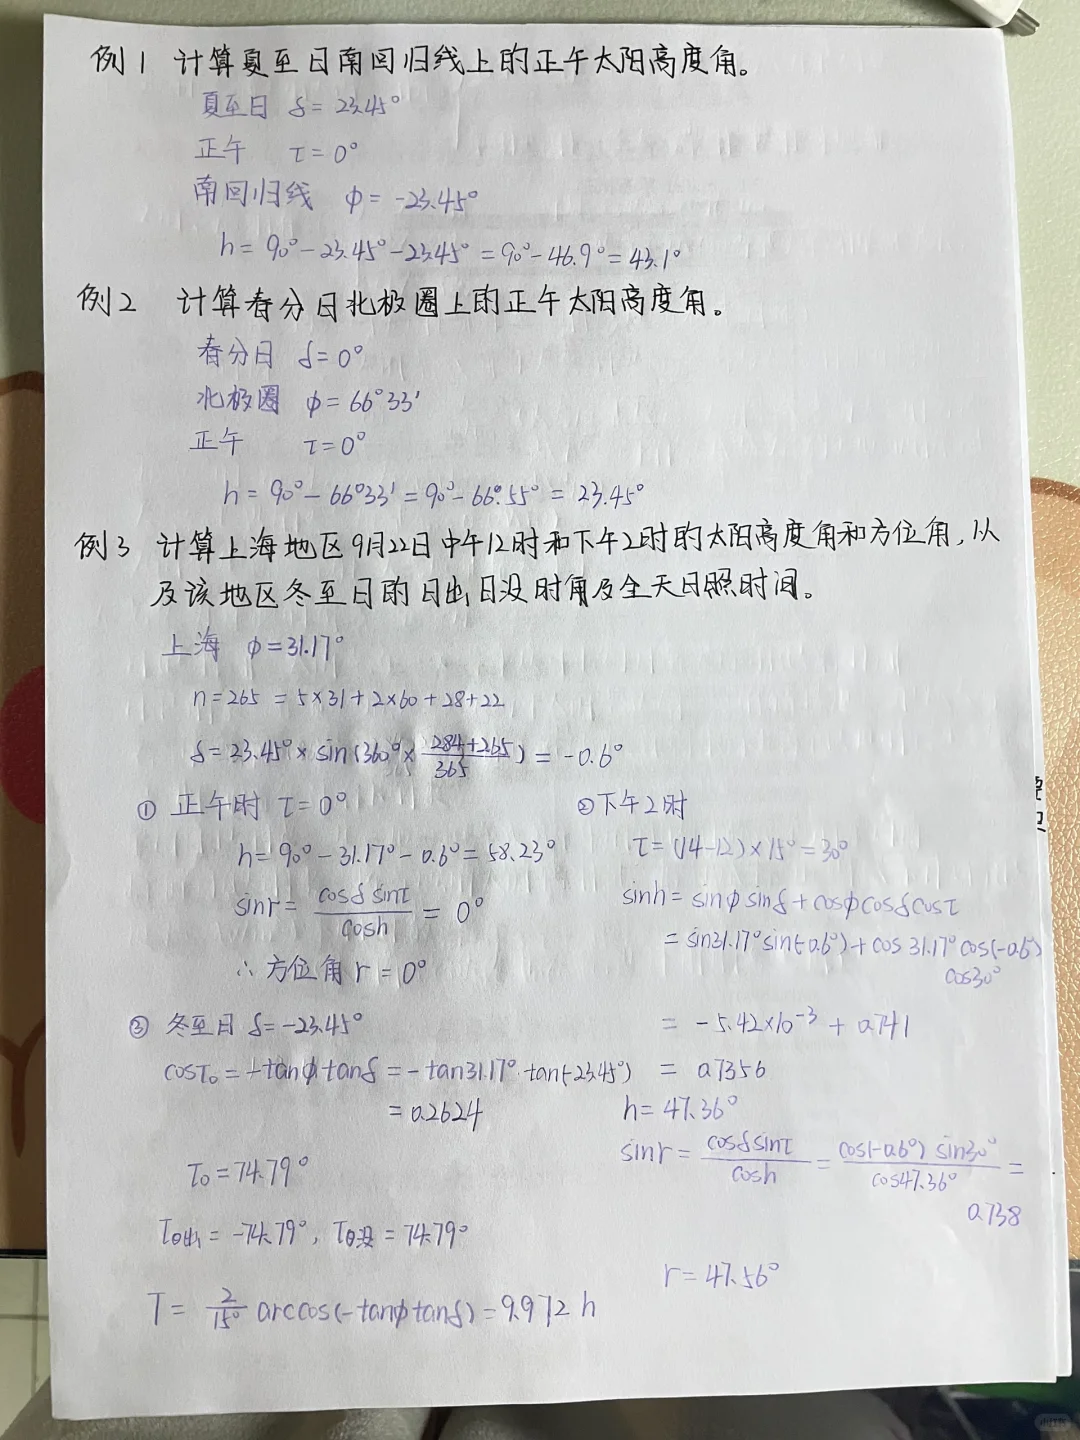 例1 计算夏至日南回归线上的正午太阳高度角。
夏至日 δ=23.45°
正午 τ=0°
南回归线 φ=-23.45°
h=90°-23.45°-23.45°=90°-46.9°=43.1°
例2 计算春分日北极圈上的正午太阳高度角。
春分日 δ=0°
北极圈 φ=66°33'
正午 τ=0°
h=90°-66°33'=90°-66.55°=23.45°
例3 计算上海地区9月22日中午12时和下午2时的太阳高度角和方位角,从
及该地区冬至日的日出日没时角及全天日照时间。
上海 φ=31.17°
n=265=5×31+2×60+28+22
δ=23.45°×sin(360°×(284+265)/365)=-0.6°
① 正午时 τ=0°
h=90°-31.17°-0.6°=58.23°
sinr=cosδsinτ/cosh=0°
∴方位角r=0°
②下午2时
τ=(14-12)×15°=30°
sinh=sinφsinδ+cosφcosδcosτ
=sin31.17°sin(-0.6°)+cos31.17°cos(-0.6°)
cos30°
=-5.42×10⁻³+0.741
=0.7356
h=47.36°
sinr=cosδsinτ/cosh=cos(-0.6°)sin30°/cos47.36°=
0.738
r=47.56°
③ 冬至日 δ=-23.45°
cosτ₀=-tanφtanδ=-tan31.17°·tan(-23.45°)
=0.2624
τ₀=74.79°
τ日出=-74.79°, τ日没=74.79°
T=2/15° arccos(-tanφtanδ)=9.972h